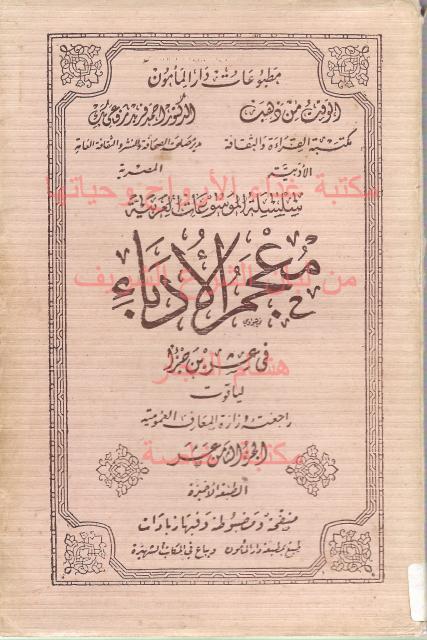 مطبوعات دار المأمون
الوقت من ذهب
الدكتور أحمد فريد رفاعى بك
مكتبة القراءة والثقافة
مدير إدارة الصحافة والنشر والثقافة العامة
الأدبية
المصرية
مكتبة غذاء الأرواح وحياتها
سلسلة الموسوعات العربية
معجم الأدباء
من
الشريف
فى عشرين جزءا
هشام
لياقوت
راجعته وزارة المعارف العمومية
مكتبة
الجزء الثامن عشر
الطبعة الأخيرة
منقحة ومضبوطة وفيها زيادات
طبع بمطبعة دار المأمون ويباع فى المكاتب الشهيرة